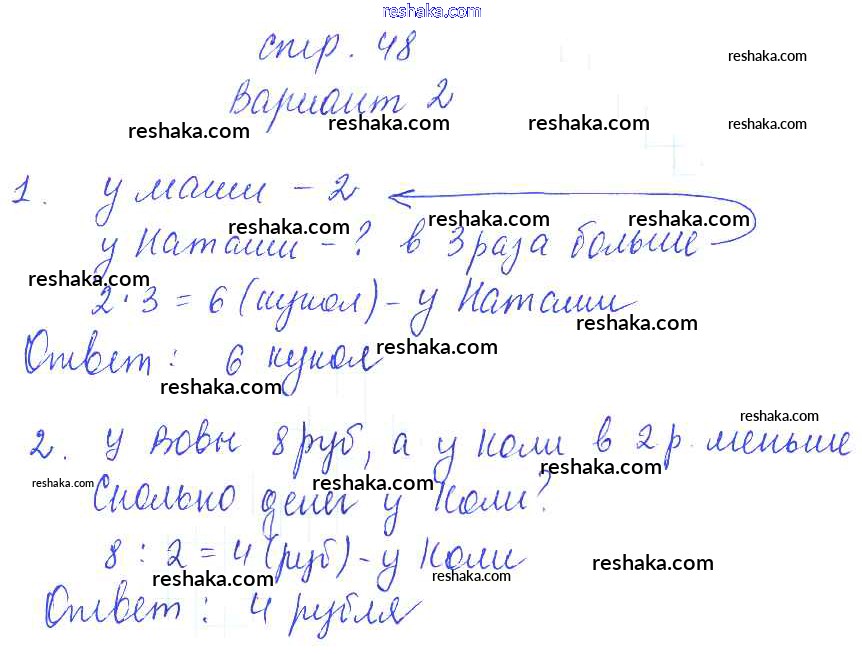 reshaka.com
стр. 48
reshaka.com
Вариант 2
reshaka.com reshaka.com reshaka.com reshaka.com
1. у маши - 2
reshaka.com reshaka.com reshaka.com
у Наташи - ? в 3 раза больше
reshaka.com
2 · 3 = 6 (кукол) - у Наташи
reshaka.com
Ответ: 6 кукол
reshaka.com
reshaka.com
reshaka.com
2. у Вовы 8 руб, а у Коли в 2 р. меньше
reshaka.com
reshaka.com reshaka.com
Сколько денег у Коли?
8 : 2 = 4 (руб) - у Коли
reshaka.com reshaka.com reshaka.com
Ответ: 4 рубля